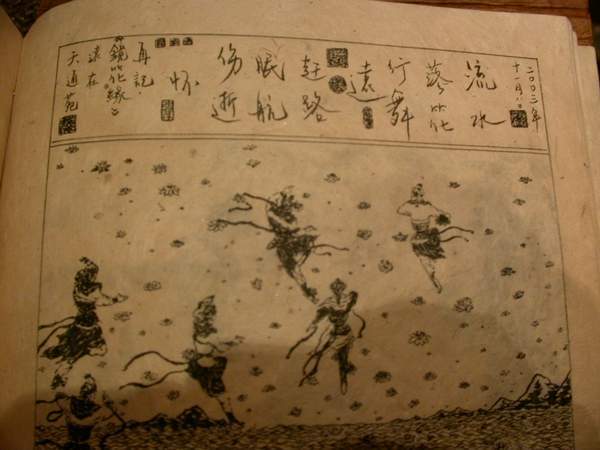 二〇〇二年
十一月八日
流水
落花
行舞
遠
赶路
眠航
伤逝
怀
再記
《鏡花缘》
在
天通苑